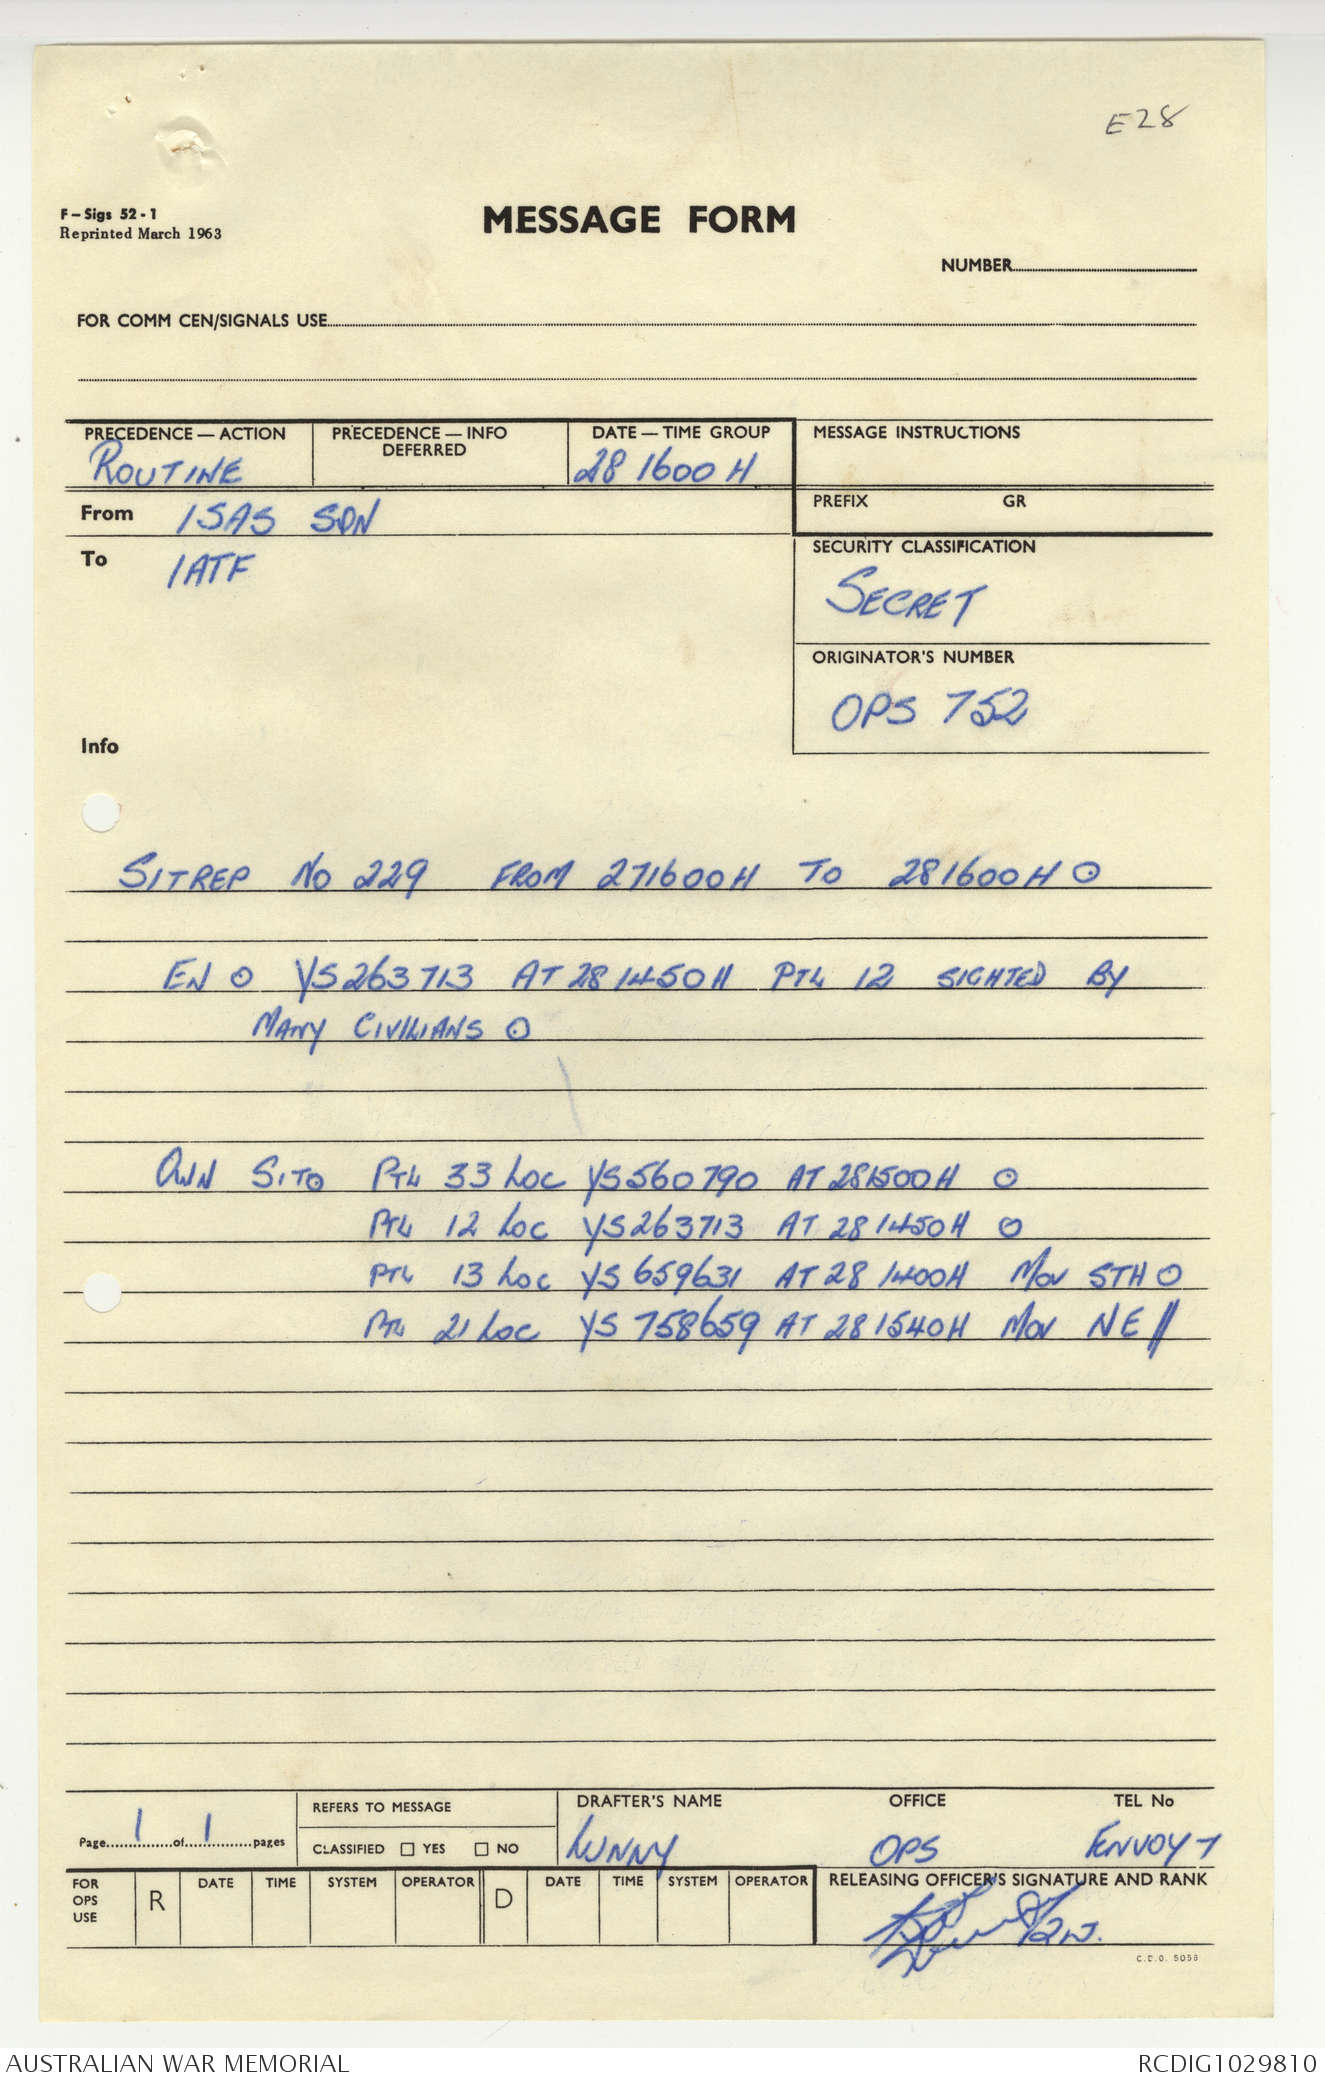 E28
F - Sigs 52 - 1
Reprinted March 1963
MESSAGE FORM
NUMBER
FOR COMM CEN/SIGNALS USE
PRECEDENCE — ACTION
ROUTINE
PRECEDENCE — INFO
DEFERRED
DATE — TIME GROUP
281600H
MESSAGE INSTRUCTIONS
PREFIX GR
From 1SAS SQN
To 1ATF
SECURITY CLASSIFICATION
SECRET
ORIGINATOR'S NUMBER
OPS 752
Info
SITREP No 229 FROM 271600H TO 281600H ⊙
EN ⊙ YS263713 AT 281450H PTL 12 SIGHTED BY
MANY CIVILIANS ⊙
OWN SIT⊙ PTL 33 LOC YS560790 AT 281500H ⊙
PTL 12 LOC YS263713 AT 281450H ⊙
PTL 13 LOC YS659631 AT 281400H MOV STH ⊙
PTL 21 LOC YS758659 AT 281540H MOV NE //
Page 1 of 1 pages
REFERS TO MESSAGE
CLASSIFIED ☐ YES ☐ NO
DRAFTER'S NAME
LUNNY
OFFICE
OPS
TEL No
ENVOY 7
FOR
OPS
USE
R DATE TIME SYSTEM OPERATOR
D DATE TIME SYSTEM OPERATOR
RELEASING OFFICER'S SIGNATURE AND RANK
C.D.O. 5056
AUSTRALIAN WAR MEMORIAL
RCDIG1029810